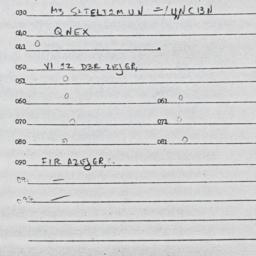 030 M3 SITELTIMUN =/UNCIBN
040 QNEX
041 0
050 VI IZ D3R ZEJER,
051 0
060 0 061 0
070 0 071 0
080 0 081 0
090 FIR AZEJER,
09 —